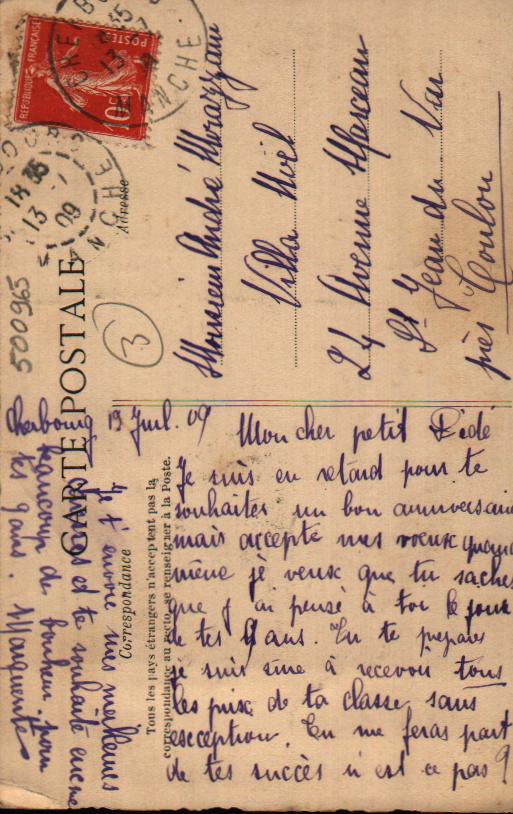 RÉPUBLIQUE FRANÇAISE
POSTES
10c
CHERBOURG
MANCHE
18 35
13 - 7
09
500965
CARTE POSTALE
3
Adresse
Monsieur André Mrazzani
Villa Noël
24 Avenue Marceau
St Jean du Var
près Toulon
Correspondance
Tous les pays étrangers n'acceptent pas la
correspondance au recto, se renseigner à la Poste.
Cherbourg 13 Juil. 09
Mon cher petit Dédé
Je suis en retard pour te
souhaiter un bon anniversaire
mais accepte mes voeux quand
même je veux que tu saches
que j'ai pensé à toi le jour
de tes 9 ans. Tu te prépares
je suis sûre à recevoir tous
les prix de ta classe sans
exception. Tu me feras part
de tes succès n'est ce pas ?
Je t'envoie mes meilleurs
et te souhaite encore
beaucoup de bonheur pour
tes 9 ans. Marguerite